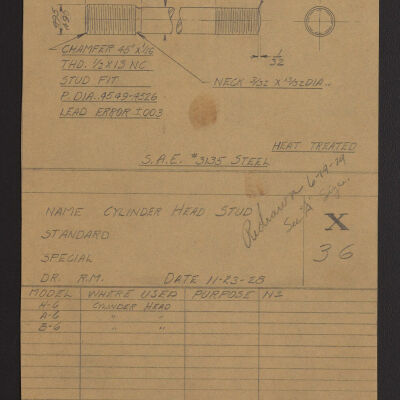 .495
.495
1/32
CHAMFER 45° X 1/16
THD. 1/2 X 13 NC
STUD FIT
P. DIA. .4549-.4526
LEAD ERROR ±.003
NECK 3/32 X 13/32 DIA.
HEAT TREATED
S.A.E. #3135 STEEL
Redrawn 6-19-29
See "A" Size.
NAME CYLINDER HEAD STUD
X
STANDARD
36
SPECIAL
DR. R.M. DATE 11-23-28
MODEL WHERE USED PURPOSE NO
H-6 CYLINDER HEAD
A-6 " "
B-6 " "